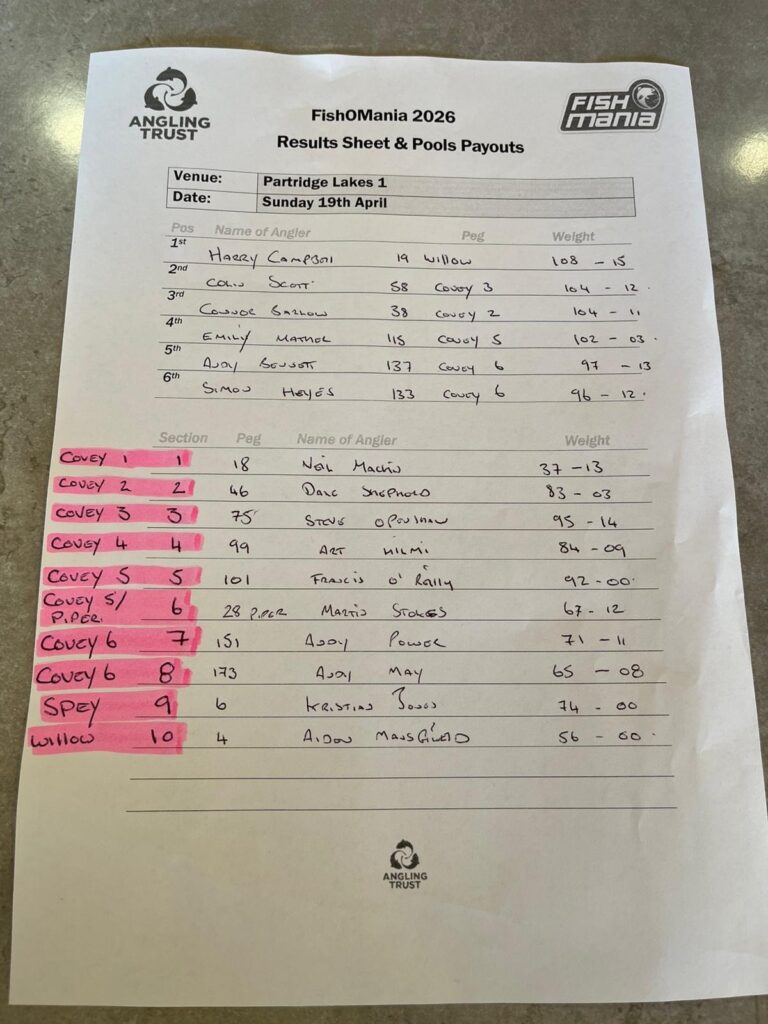 ANGLING
TRUST
FISH
mania
FishOMania 2026
Results Sheet & Pools Payouts
Venue: Partridge Lakes 1
Date: Sunday 19th April
Pos Name of Angler Peg Weight
1st HARRY CAMPBELL 19 WILLOW 108 - 15
2nd COLIN SCOTT 58 COVEY 3 104 - 12
3rd CONNOR BARLOW 38 COVEY 2 104 - 11
4th EMILY MATHER 115 COVEY 5 102 - 03
5th ANDY BENNETT 137 COVEY 6 97 - 13
6th SIMON HEYES 133 COVEY 6 96 - 12
Section Peg Name of Angler Weight
COVEY 1 1 18 NEIL MACHIN 37 - 13
COVEY 2 2 46 DALE SHEPHERD 83 - 03
COVEY 3 3 75 STEVE OPENSHAW 95 - 14
COVEY 4 4 99 ART HILMI 84 - 09
COVEY 5 5 101 FRANCIS O'REILLY 92 - 00
COVEY 5/ PIPER. 6 28 PIPER MARTIN STOKES 67 - 12
COVEY 6 7 151 ANDY POWER 71 - 11
COVEY 6 8 173 ANDY MAY 65 - 08
SPEY 9 6 KRISTIAN JONES 74 - 00
WILLOW 10 4 AIDEN MANSFIELD 56 - 00
ANGLING
TRUST